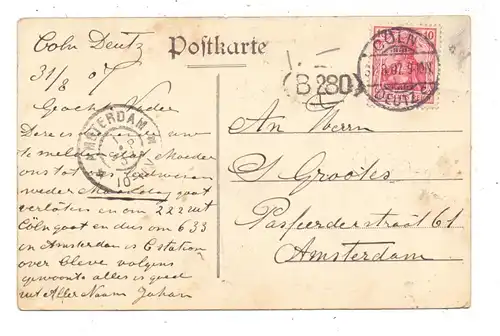 Postkarte
Coln Deutz
31/8 07
Geachte Vader
Deze is dienende om
te melden dat Moeder
ons tot
weder Maandag gaat
verlaten en om 222 uit
Cöln gaat en dus om 633
in Amsterdam is C station
over Cleve volgens
gewoonte alles is goed
uit Aller Naam Johan
AMSTERDAM
(B 280)
CÖLN
DEUTZ
10
An Herrn
S Grootes
Passeerderstraat 61
Amsterdam